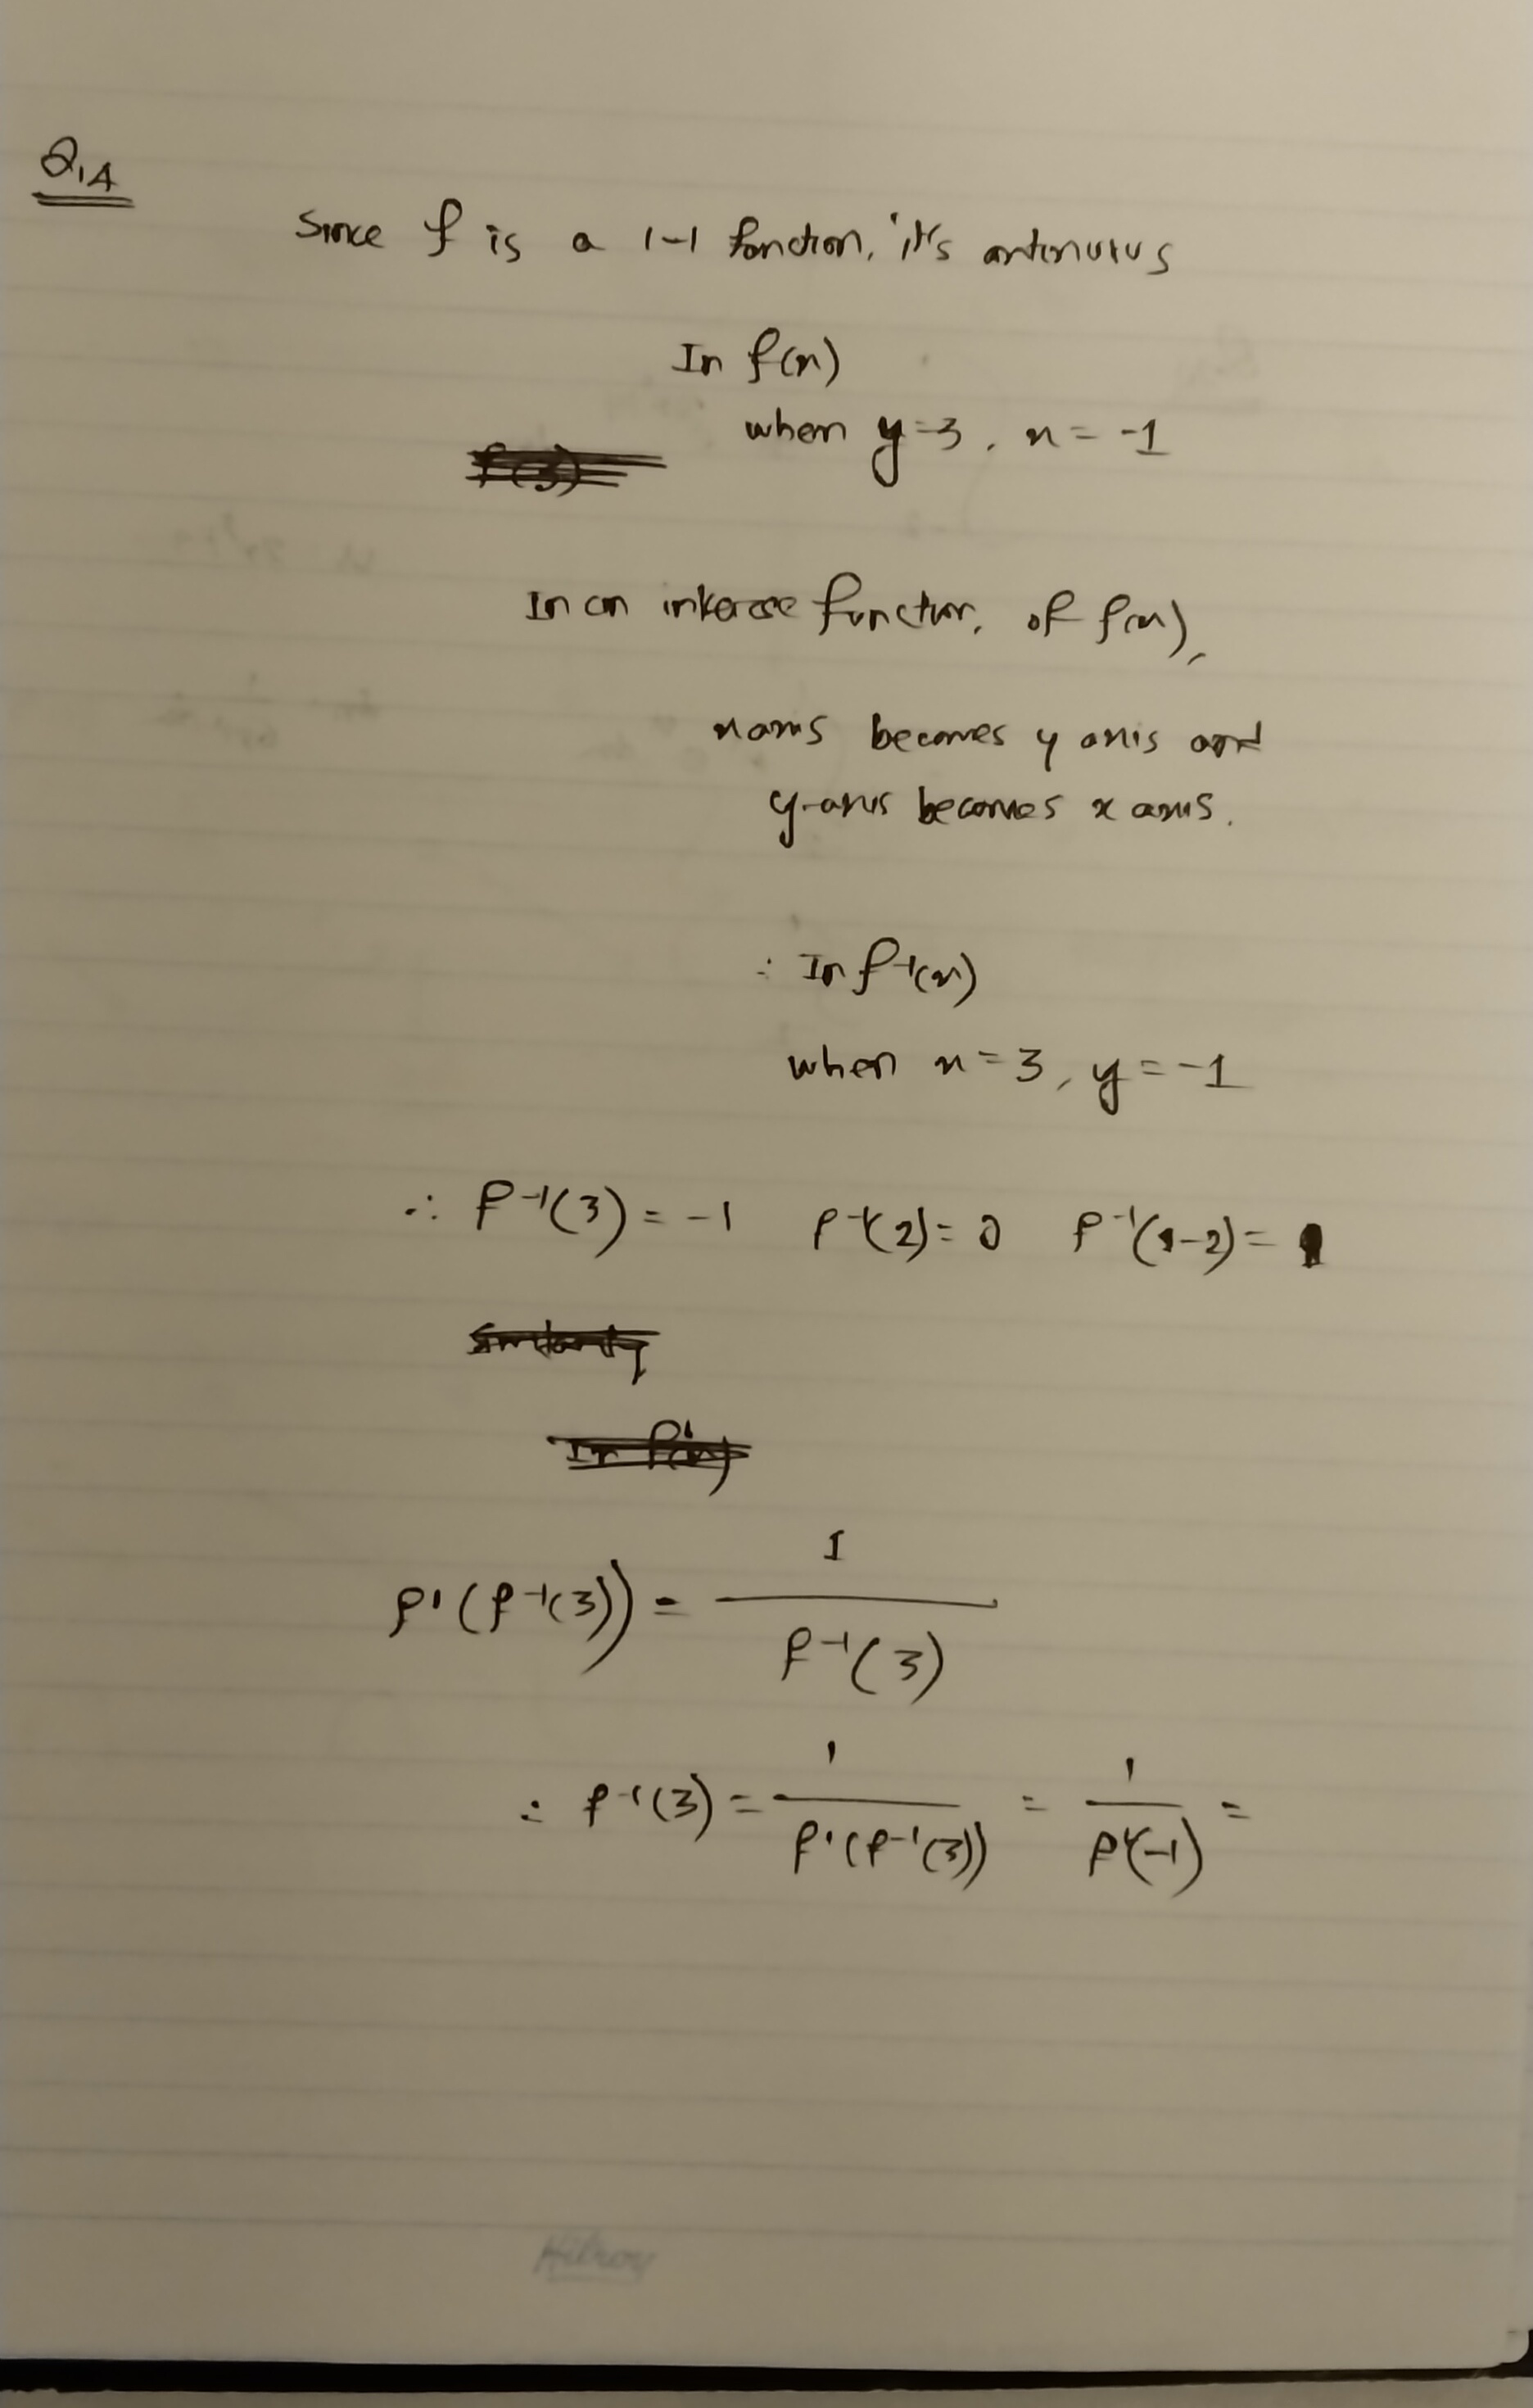 Q1A
Since f is a 1-1 function, it's continuous
In f(x)
when y=3, x = -1
f(3)
In an inverse function, of f(x),
x axis becomes y axis and
y-axis becomes x axis.
∴ In f⁻¹(x)
when x = 3, y = -1
∴ f⁻¹(3) = -1 f⁻¹(2) = 0 f⁻¹(-2) = 1
Similarly
In f'(x)
f'(f⁻¹(3)) = 1 / f⁻¹(3)
∴ f⁻¹(3) = 1 / f'(f⁻¹(3)) = 1 / f'(-1) =
Hilroy